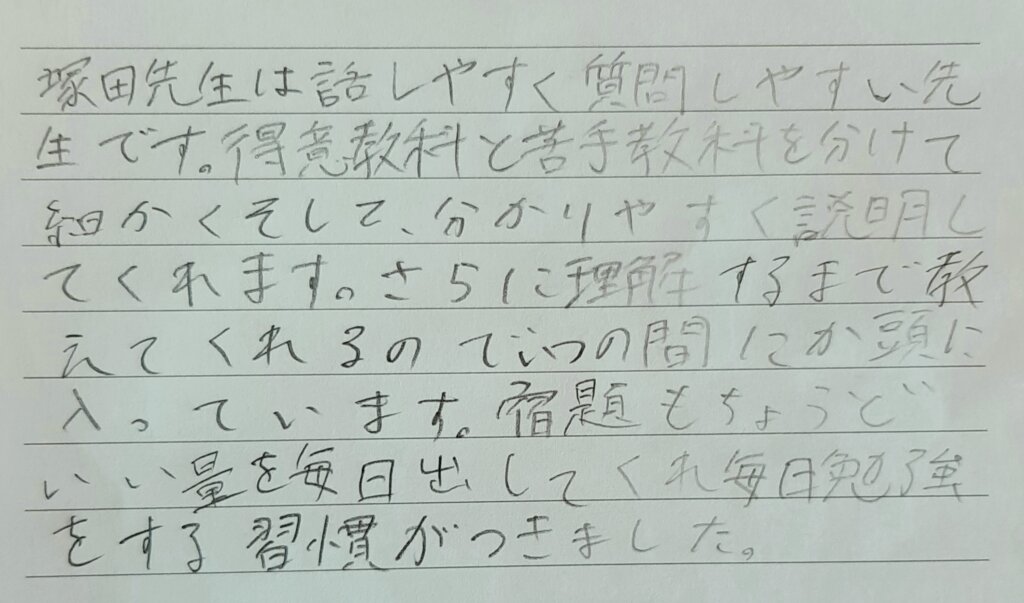 塚田先生は話しやすく質問しやすい先
生です。得意教科と苦手教科を分けて
細かくそして、分かりやすく説明し
てくれます。さらに理解するまで教
えてくれるのでいつの間にか頭に
入っています。宿題もちょうど
いい量を毎日出してくれ毎日勉強
をする習慣がつきました。